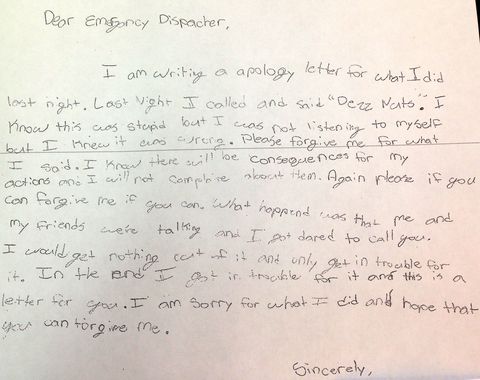 Dear Emergency Dispacher,
I am writing a apology letter for what I did
last night. Last Night I called and said "Dezz Nuts". I
Know this was stupid but I was not listening to myself
but I Knew it was wrong. Please forgive me for what
I said. I Know there will be consequences for my
actions and I will not complaine about them. Again please if you
can forgive me if you can. What happend was that me and
my friends were talking and I got dared to call you.
I would get nothing out of it and only get in trouble for
it. In the end I got in trouble for it and this is a
letter for you. I am sorry for what I did and hope that
you can forgive me.
Sincerely,